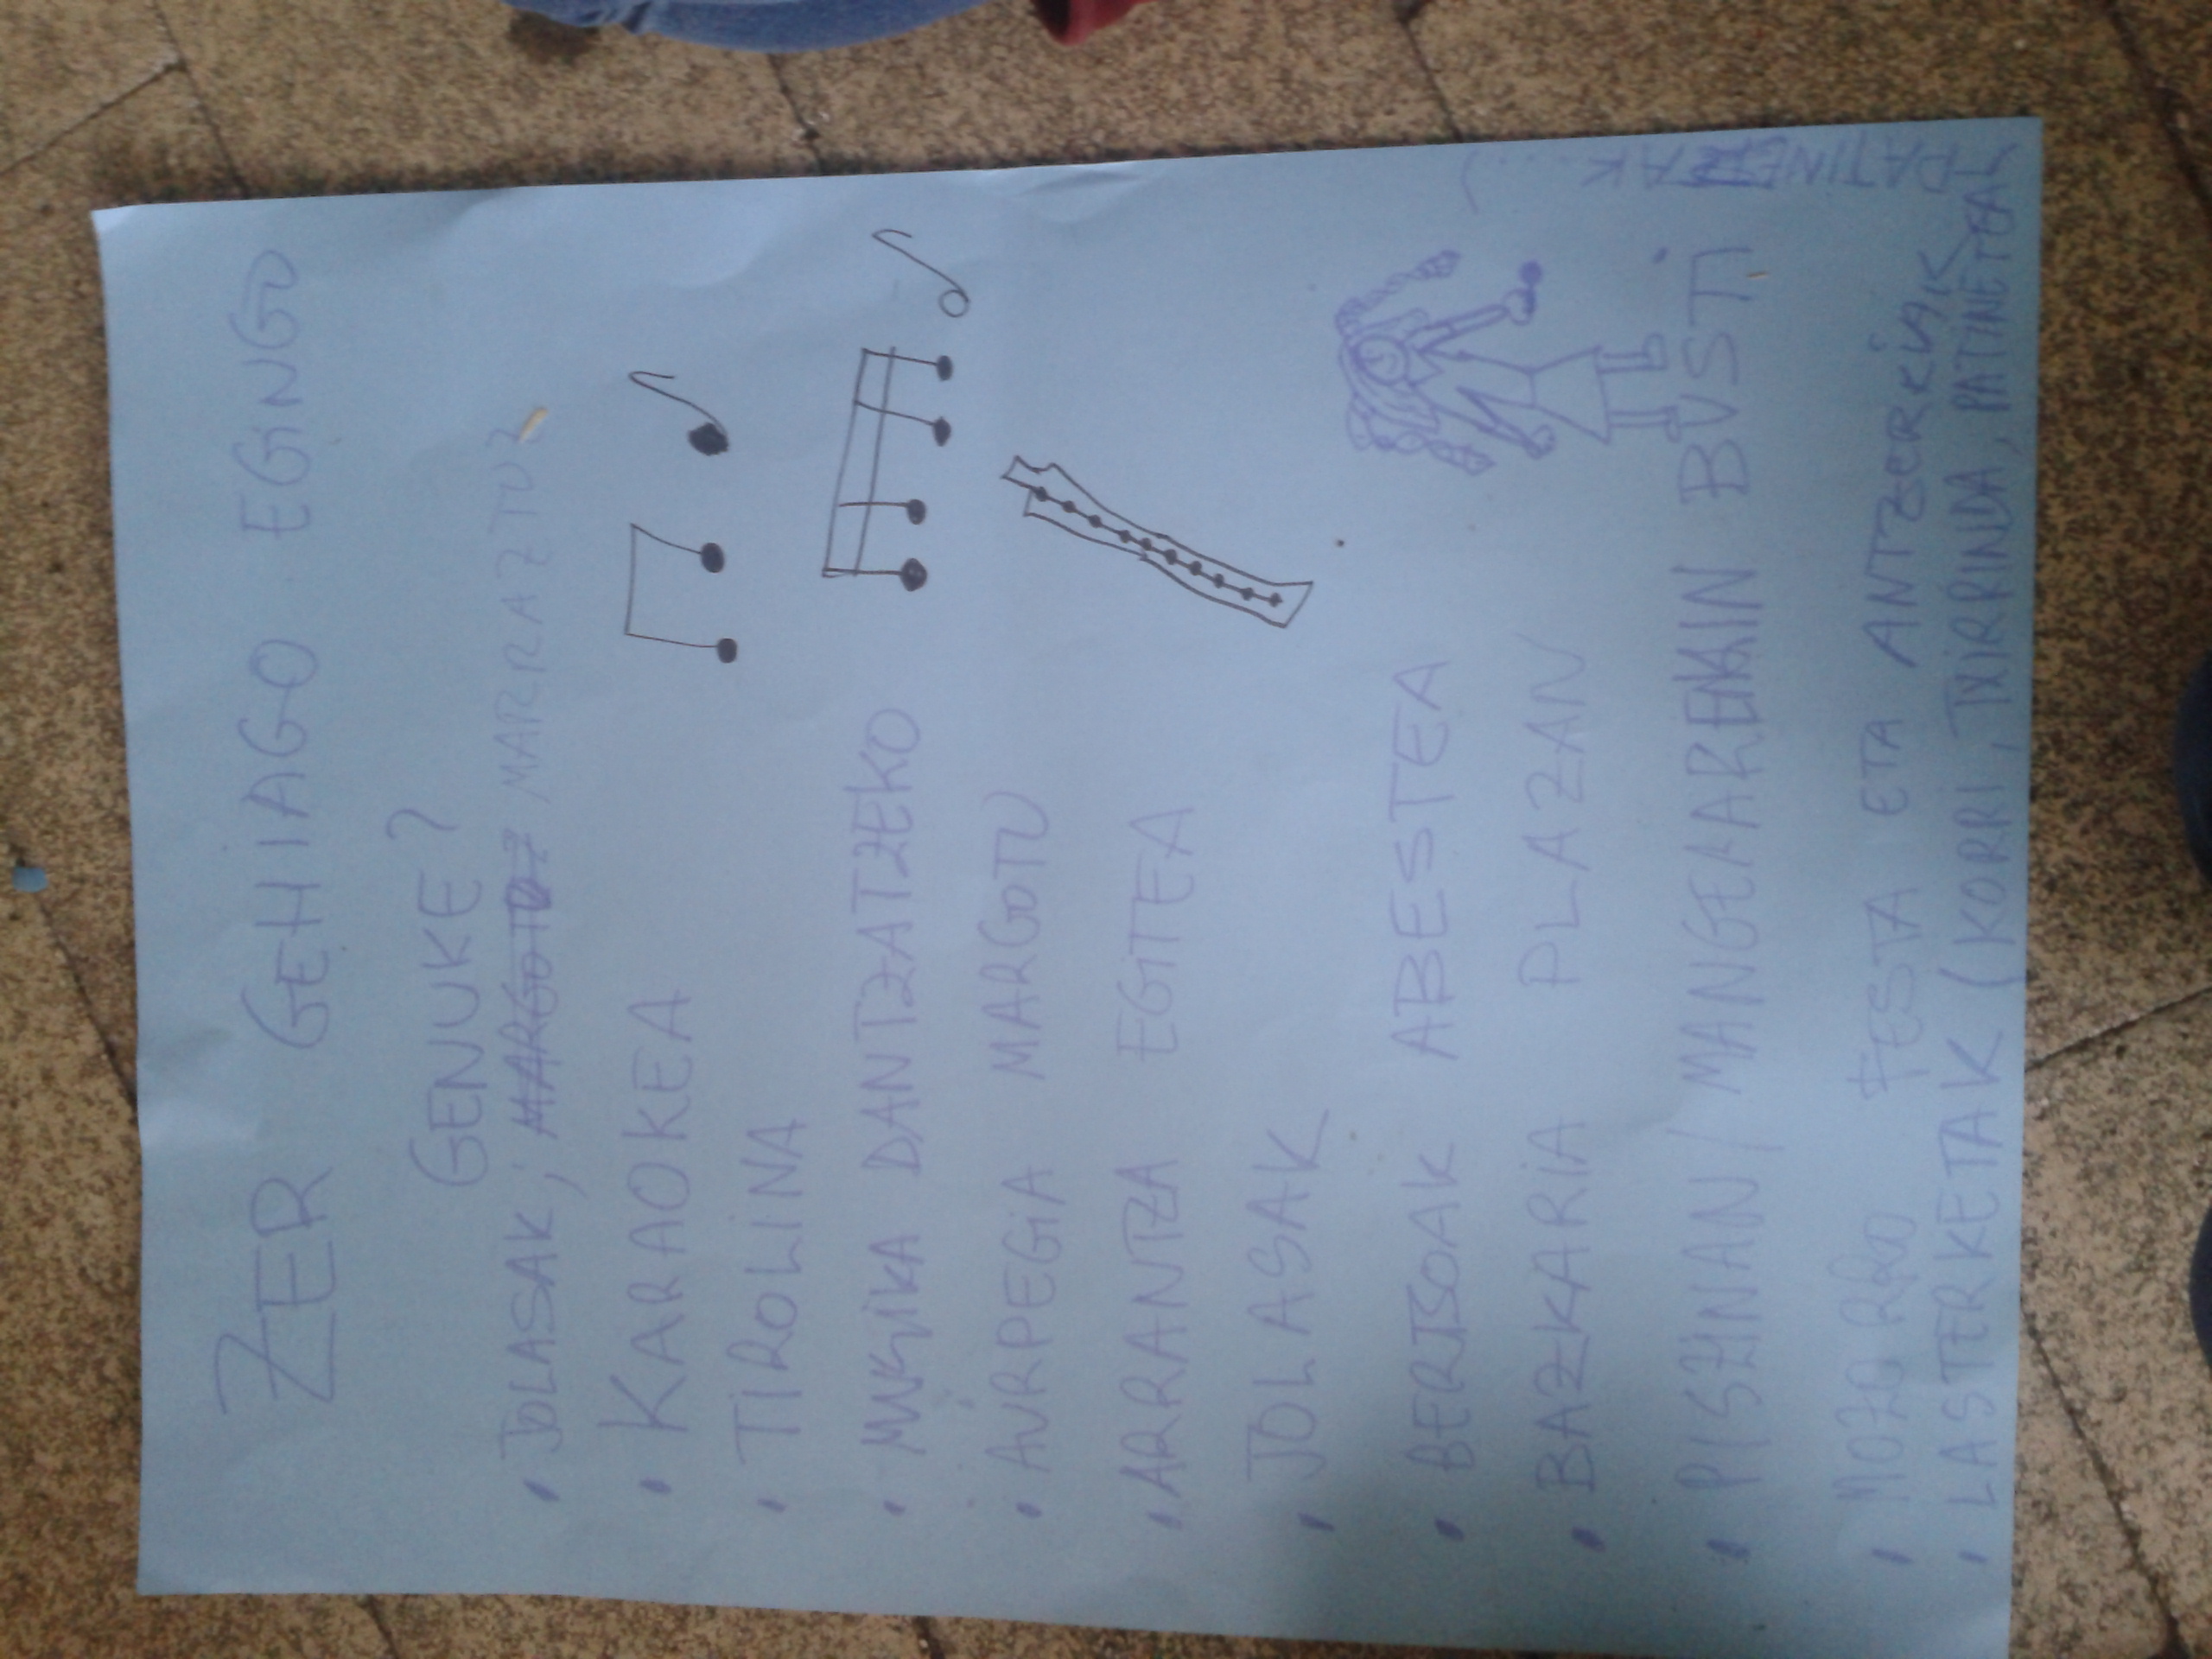 ZER GEHIAGO EGINGO
GENUKE?
• JOLASAK; MARGOTU MARRAZTU?
• KARAOKEA
• TIROLINA
• MUSIKA DANTZATZEKO
• AURPEGIA MARGOTU
• ARRANTZA EGITEA
• JOLASAK
• BERTSOAK ABESTEA
• BAZKARIA PLAZAN
• PISZINAN / MANGEAREKIN BUSTI
• MOZORRO FESTA ETA ANTZERKIAK
• LASTERKETAK (KORRI, TXIRRINDA, PATINETEAK
PATINEAK